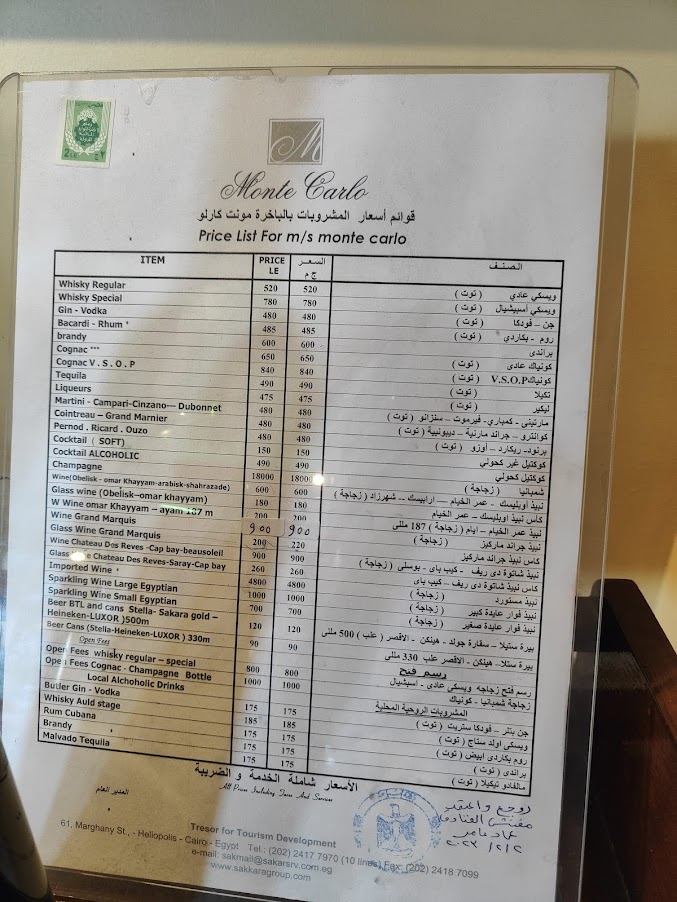 M
Monte Carlo
قوائم أسعار المشروبات بالباخرة مونت كارلو
Price List For m/s monte carlo
ITEM PRICE LE السعر ج م الصنف
Whisky Regular 520 520 ويسكي عادي ( توت )
Whisky Special 780 780 ويسكي أسبيشيال ( توت )
Gin - Vodka 480 480 جن – فودكا ( توت )
Bacardi - Rhum * 485 485 روم - بكاردي ( توت )
brandy 600 600 براندى
Cognac *** 650 650 كونياك عادى ( توت )
Cognac V . S . O . P 840 840 كونياك V.S.O.P ( توت )
Tequila 490 490 تكيلا ( توت )
Liqueurs 475 475 ليكير ( توت )
Martini - Campari-Cinzano— Dubonnet 480 480 مارتينى - كمباري- فيرموت – سنزانو ( توت )
Cointreau – Grand Marnier 480 480 كوانترو – جراند مارنية – ديبونيية ( توت )
Pernod . Ricard . Ouzo 480 480 برنود- ريكارد – أوزو ( توت )
Cocktail ( SOFT) 150 150 كوكتيل غير كحولي
Cocktail ALCOHOLIC 490 490 كوكتيل كحولي
Champagne 18000 18000 شمبانيا ( زجاجة )
Wine(Obelisk - omar Khayyam-arabisk-shahrazade) 600 600 نبيذ أوبليسك - عمر الخيام — ارابيسك -- شهرزاد ( زجاجة )
Glass wine (Obelisk–omar khayyam) 180 180 كأس نبيذ اوبليسك – عمر الخيام
W Wine omar Khayyam – ayam 187 m 200 200 نبيذ عمر الخيام – ايام ( زجاجة ) 187 مللى
Wine Grand Marquis 900 900 نبيذ جراند ماركيز ( زجاجة )
Glass Wine Grand Marquis 200 220 كاس نبيذ جراند ماركيز
Wine Chateau Des Reves -Cap bay-beausoleil 900 900 نبيذ شاتوة دى ريف - كيب باى - بوسلى ( زجاجة )
Glass Wine Chateau Des Reves-Saray-Cap bay 260 260 كاس نبيذ شاتوة دى ريف – كيب باى
Imported Wine * 4800 4800 نبيذ مستورد ( زجاجة )
Sparkling Wine Large Egyptian 1000 1000 نبيذ فوار عايدة كبير ( زجاجة )
Sparkling Wine Small Egyptian 700 700 نبيذ فوار عايدة صغير ( زجاجة )
Beer BTL and cans Stella- Sakara gold – Heineken-LUXOR )500m 120 120 بيرة ستيلا – سقارة جولد - هينكن - الاقصر ( علب ) 500 مللى
Beer Cans (Stella-Heineken-LUXOR ) 330m 90 90 بيرة ستلا- هينكن - الاقصر علب 330 مللى
Open Fees رسم فتح
Open Fees whisky regular – special 800 800 رسم فتح زجاجه ويسكي عادى - اسبشيال
Open Fees Cognac - Champagne Bottle 1000 1000 زجاجة شمبانيا - كونياك
Local Alchoholic Drinks المشروبات الروحية المحلية
Butler Gin - Vodka 175 175 جن بتلر – فودكا ستريت ( توت )
Whisky Auld stage 185 185 ويسكى اولد ستاج ( توت )
Rum Cubana 175 175 روم بكاردى ابيض ( توت )
Brandy 175 175 براندى ( توت )
Malvado Tequila 175 175 مالفادو تيكيلا ( توت )
الأسعار شاملة الخدمة و الضريبة
All Prices Including Taxes And Services
المدير العام
Tresor for Tourism Development
61, Marghany St., - Heliopolis - Cairo - Egypt Tel.: (202) 2417 7970 (10 lines) Fax: (202) 2418 7099
e-mail: sakmail@sakarsrv.com.eg
www.sakkaragroup.com